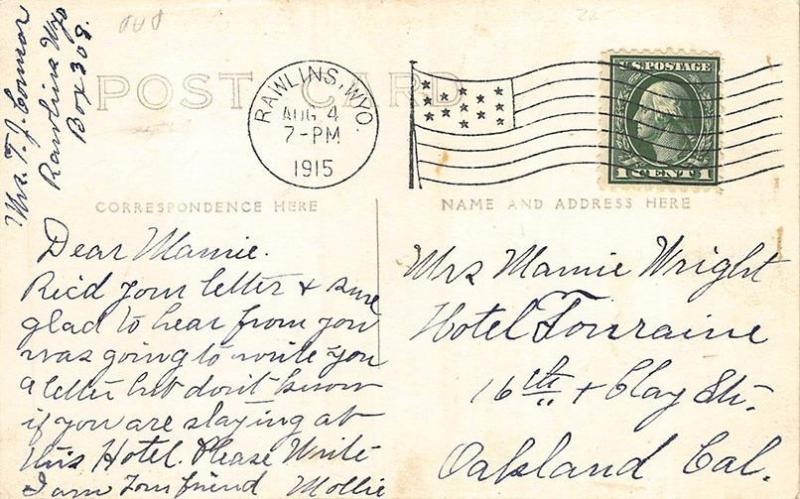 Mrs. T. J. Connor
Rawlins Wyo
Box 308.
POST CARD
RAWLINS, WYO.
AUG 4
7-PM
1915
U.S. POSTAGE
1 CENT 1
CORRESPONDENCE HERE
NAME AND ADDRESS HERE
Dear Mamie.
Rec'd your letter & sure
glad to hear from you
was going to write you
a letter but don't know
if you are staying at
this Hotel. Please Write
I am your friend Mollie
Mrs Mamie Wright
Hotel Touraine
16th & Clay Str.
Oakland Cal.